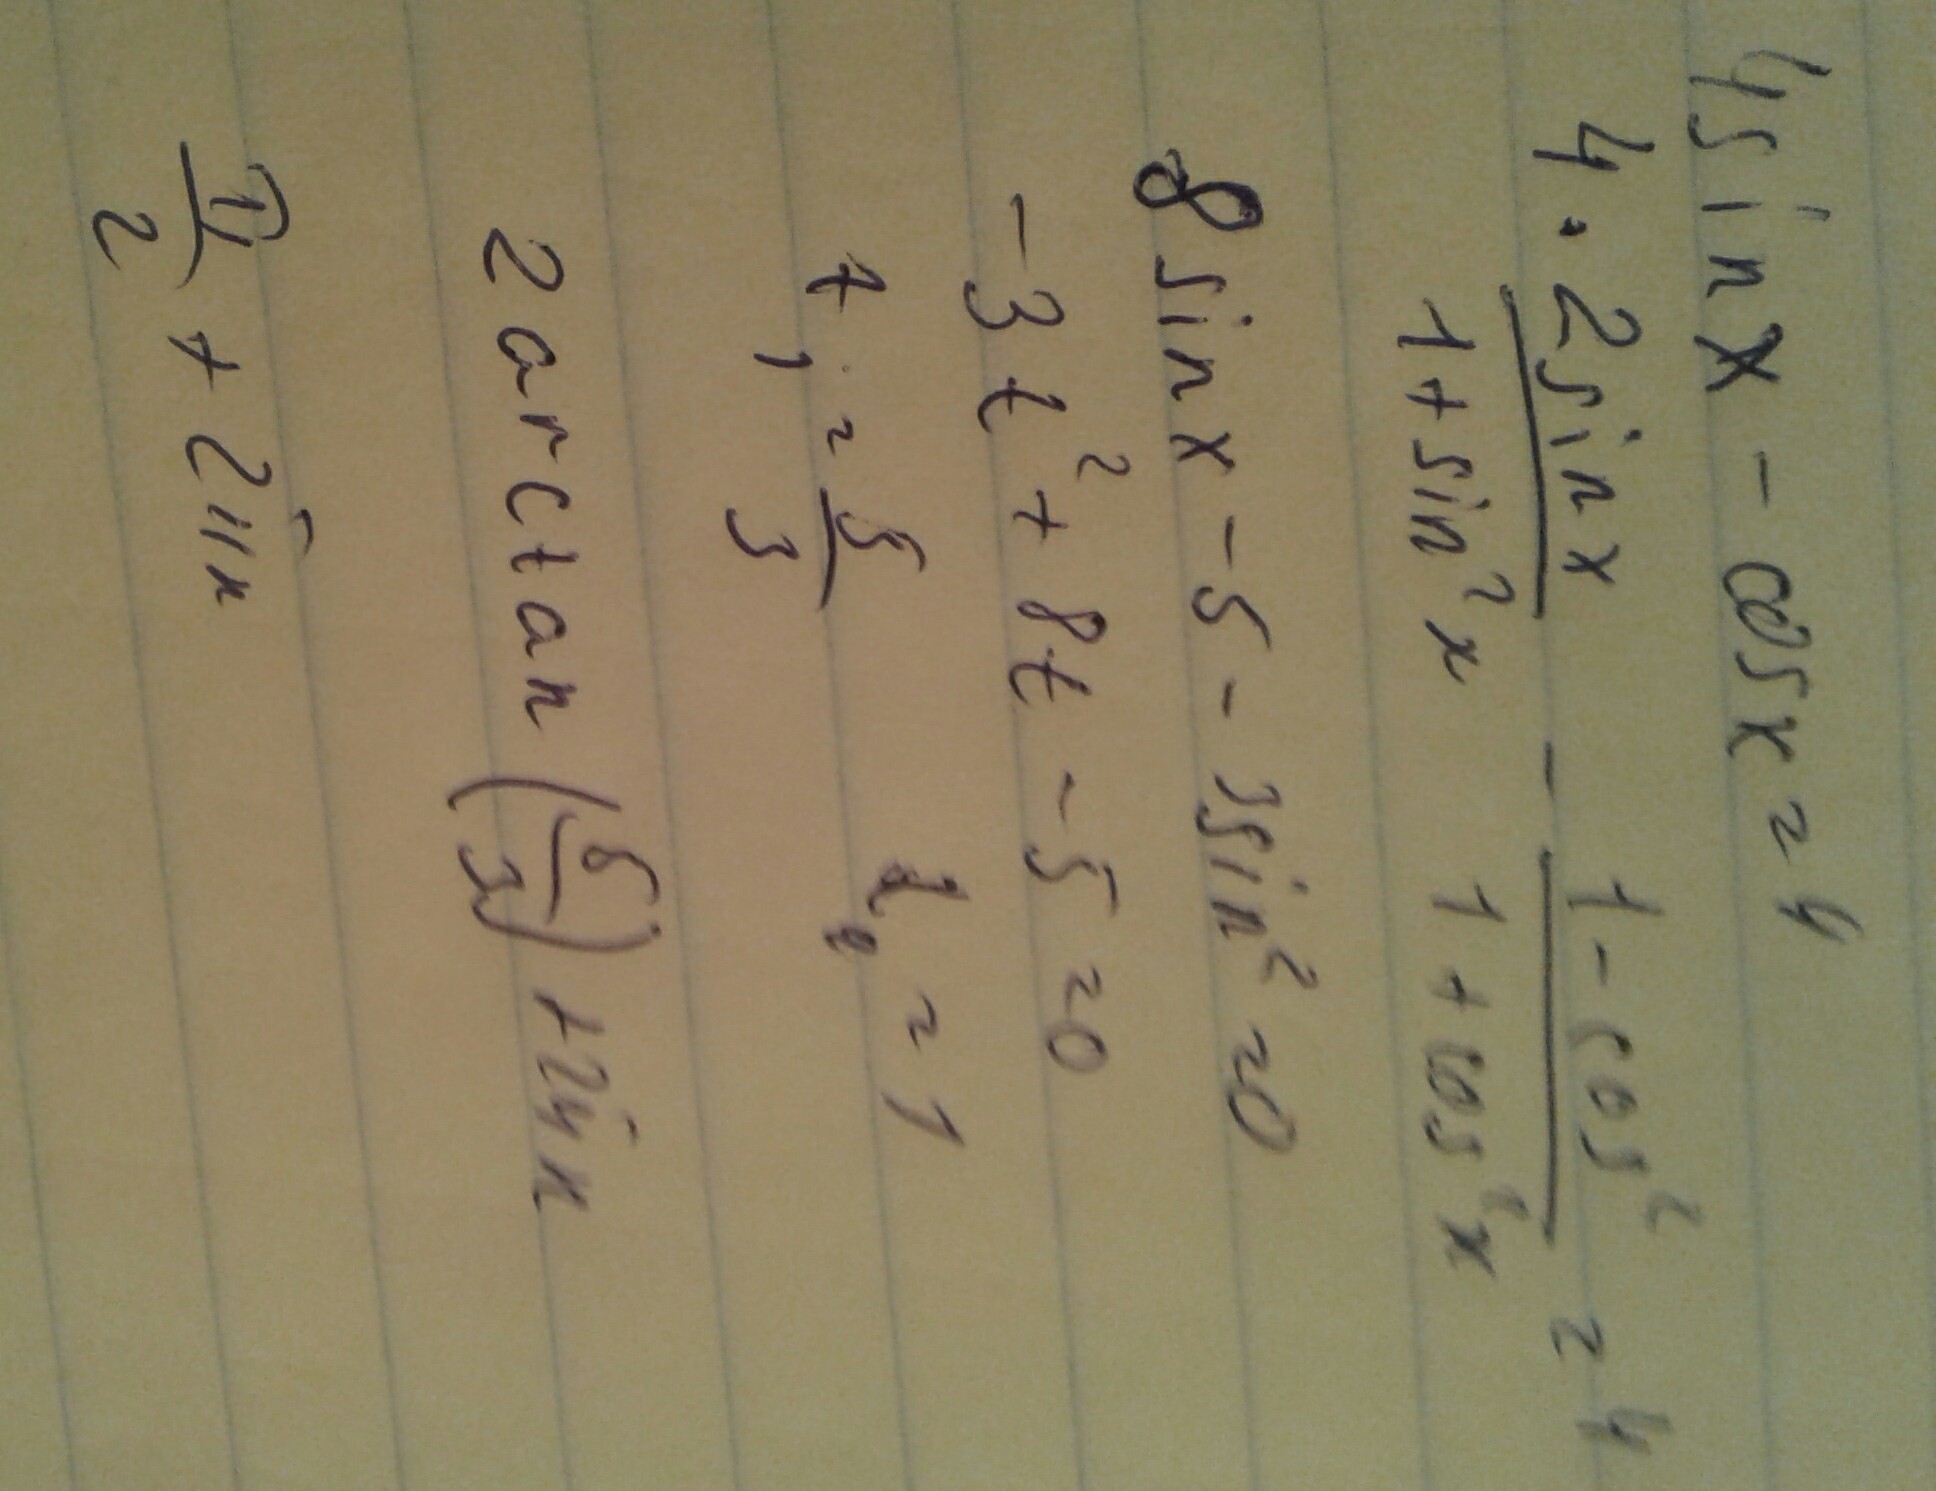 4sinx - cosx = 4
4 · 2sinx / 1 + sin²x - 1 - cos² / 1 + cos²x = 4
8sinx - 5 - 3sin² = 0
-3t² + 8t - 5 = 0
t₁ = 5/3 t₂ = 1
2arctan(5/3) + 2πn
π/2 + 2πn